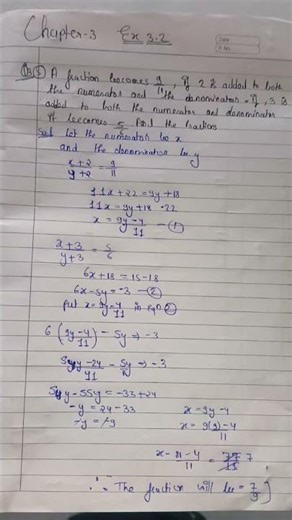 Chapter-3 Ex 3.2
Q3(5) A fraction becomes 9/11, if 2 is added to both
the numerator and the denominator. If, 3 is
added to both the numerator and denominator
it becomes 5/6 find the fraction
Sol. Let the numerator be x
and the denominator be y
x+2/y+2 = 9/11
11x+22 = 9y+18
11x = 9y+18-22
x = 9y-4/11 —①
x+3/y+3 = 5/6
6x+18 = 15-18
6x-5y = -3 —②
put x = 9y-4/11 in eqn ②
6(9y-4/11) - 5y ⇒ -3
54y-24/11 - 5y ⇒ -3
54y-55y = -33+24
-y = 24-33 x = 9y-4
-y = -9 x = 9(9)-4/11
x = 81-4/11 = 77/11 7
∴ The fraction will be = 7/9]